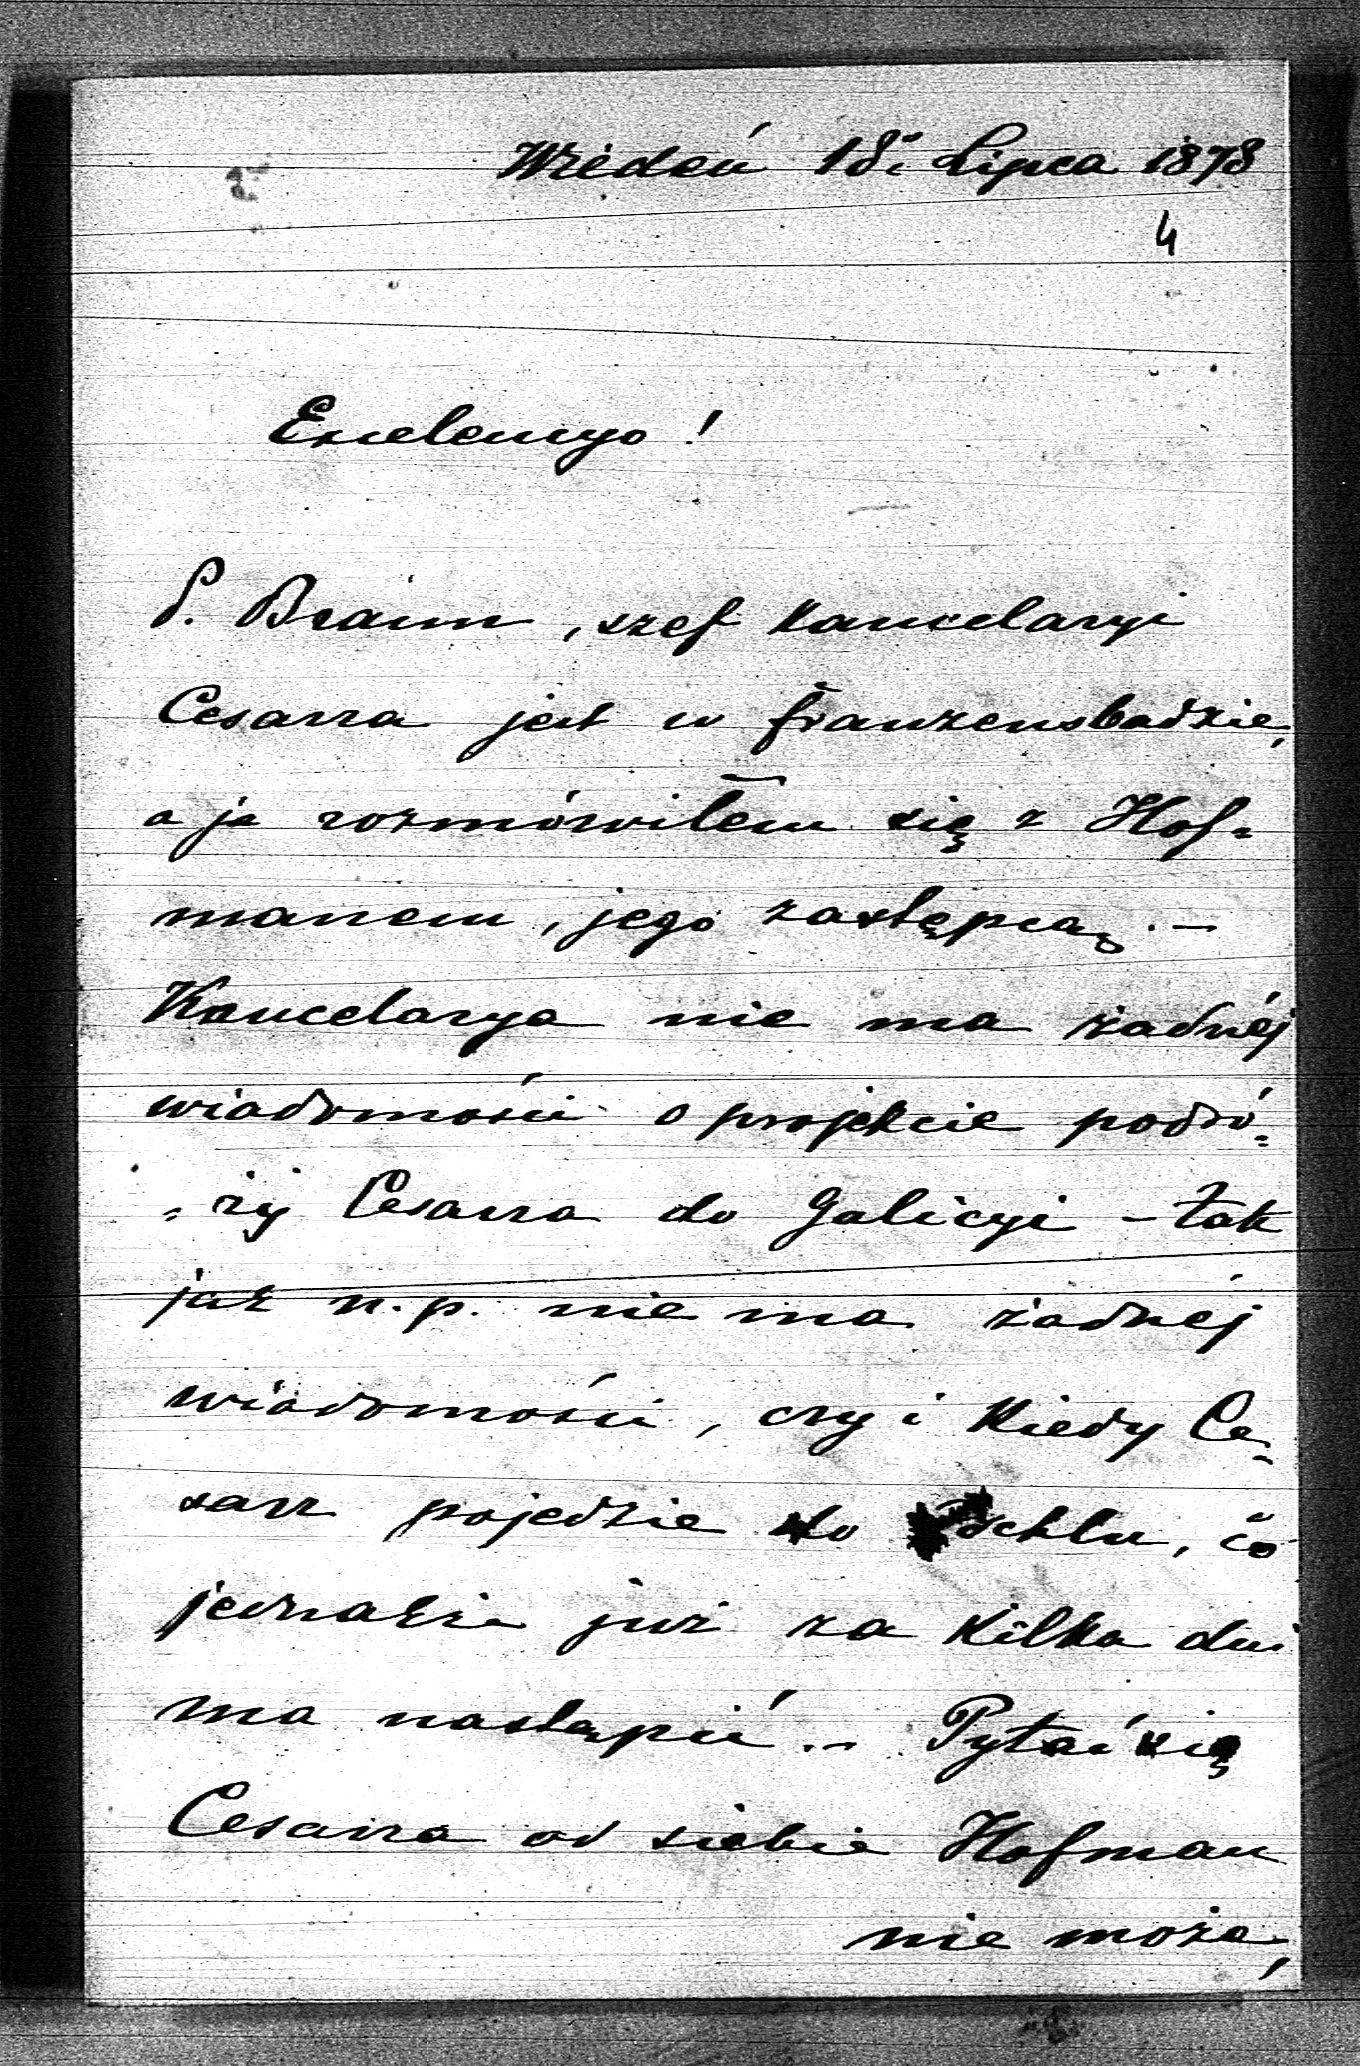 Wiedeń 18. Lipca 1878
4
Excelencyo!
P. Braun, szef kancelaryi
Cesarza jest w Franzensbadzie,
a ja rozmówiłem się z Hof-
manem, jego zastępcą. –
Kancelarya nie ma żadnéj
wiadomości o projekcie podró-
-ży Cesarza do Galicyi – tak
jak n.p. nie ma żadnéj
wiadomości, czy i kiedy Ce-
sarz pojedzie do Ischlu, co
jednakże już za kilka dni
ma nastąpić. – Pytać się
Cesarza od siebie Hofman
nie może,